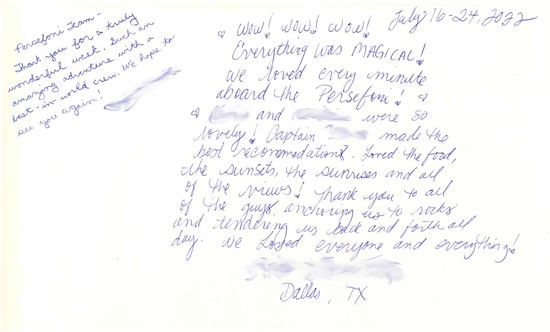 Persefoni Team -
Thank you for a truly
wonderful week. Such an
amazing adventure with a
best-in world crew. We hope to
see you again!
July 16-24, 2022
WOW! WOW! WOW!
Everything was MAGICAL!
We loved every minute
aboard the Persefoni!
and were so
lovely! Captain made the
best recomodations. Loved the food,
the sunsets, the sunrises and all
of the views! Thank you to all
of the guys anchoring us to rocks
and tendering us back and forth all
day. We Loved everyone and everything!
Dallas, TX